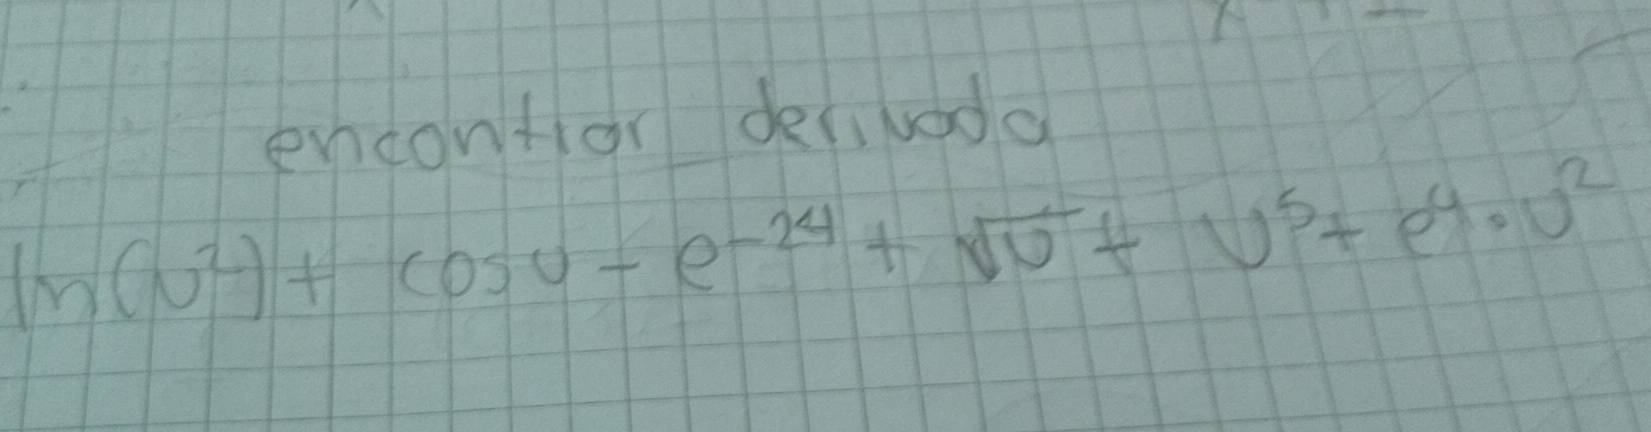 encontrar derivada
ln(u²) + cos u - e⁻²⁴ + √u + u⁵ + e⁴·u²